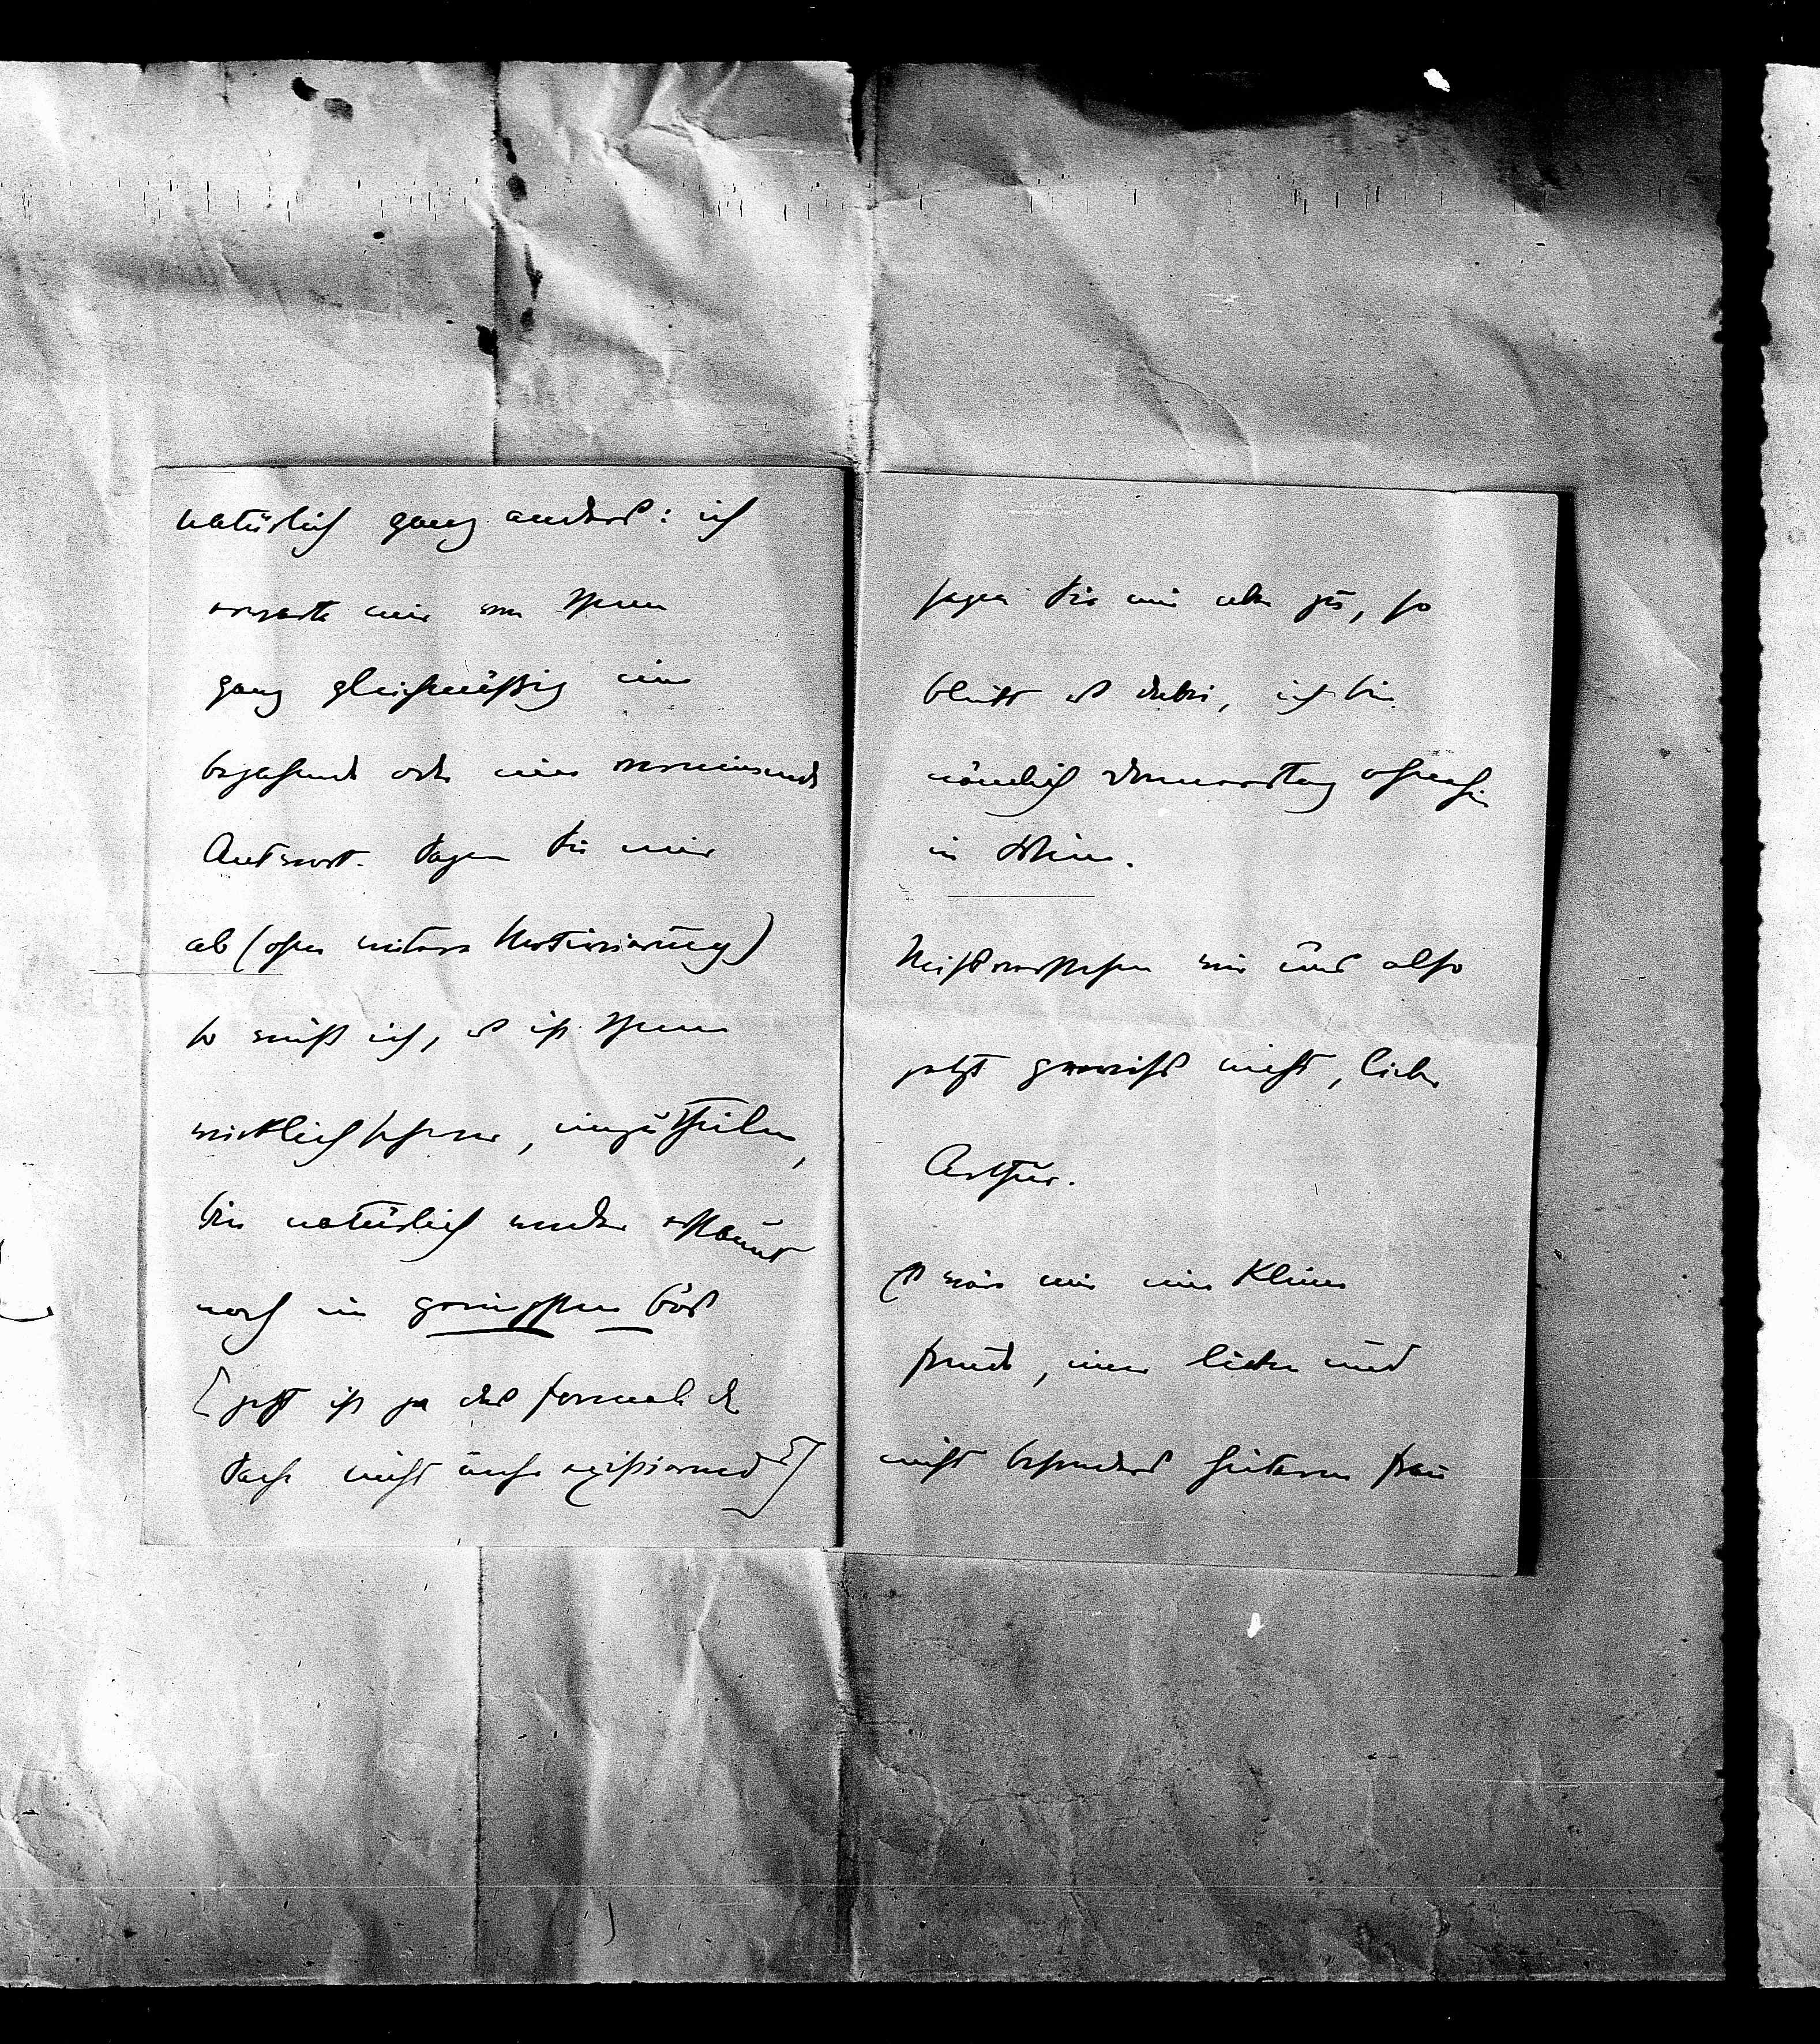 natürlich ganz anders: ich
erwarte mir von Ihnen
ganz gleichmüthig eine
bejahende oder eine verneinende
Antwort. Sagen Sie mir
ab (ohne weitere Motivierung)
so weiß ich, es ist Ihnen
wirklich schwer, einzutheilen,
bin natürlich weder erstaunt
noch im geringsten bös
[jetzt ist ja das formal de
Sache nicht mehr existierend]
sagen Sie mir aber zu, so
bleibt es dabei, ich bin
nämlich Donnerstag ohnehin
in Wien.
Missverstehen wir uns also
jetzt gewiss nicht, lieber
Arthur.
Es wäre mir eine kleine
Freude, einer lieben und
nicht besonders heiteren Frau